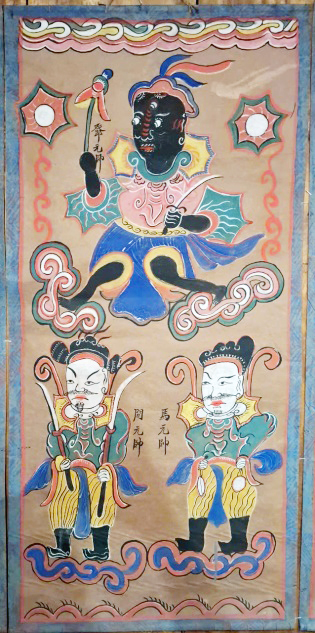 元帥
周元帥
馬元帥